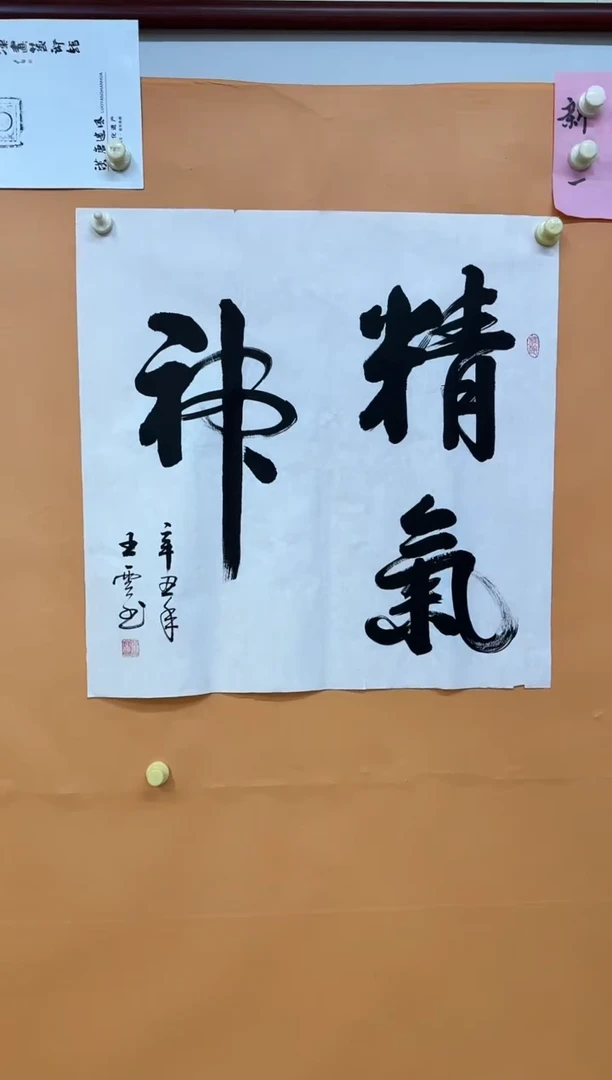 精氣
神
辛丑年
王雲书
新
一